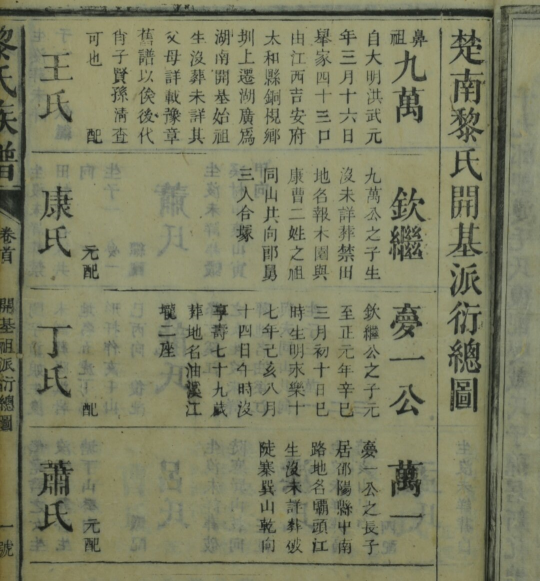 楚南黎氏開基派衍總圖
鼻祖九萬
自大明洪武元
年三月十六日
舉家四十三口
由江西吉安府
太和縣銅梘鄉
圳上遷湖廣爲
湖南開基始祖
生沒葬未詳其
父母詳載豫章
舊譜以俟後代
肖子賢孫清查
可也
配
王氏
欽繼
九萬公之子生
沒未詳葬禁田
地名報木園與
康曹二姓之祖
同山共向郎舅
三人合塚
元配
康氏
夢一公
欽繼公之子元
至正元年辛巳
三月初十日巳
時生明永樂十
七年己亥八月
十四日午時沒
享壽七十九歲
葬地名油溪江
壠二座
配
丁氏
萬一
夢一公之長子
居邵陽縣中南
路地名霸頭江
生沒未詳葬破
陡寨巽山乾向
元配
蕭氏
黎氏族譜
卷首
開基祖派衍總圖
一號